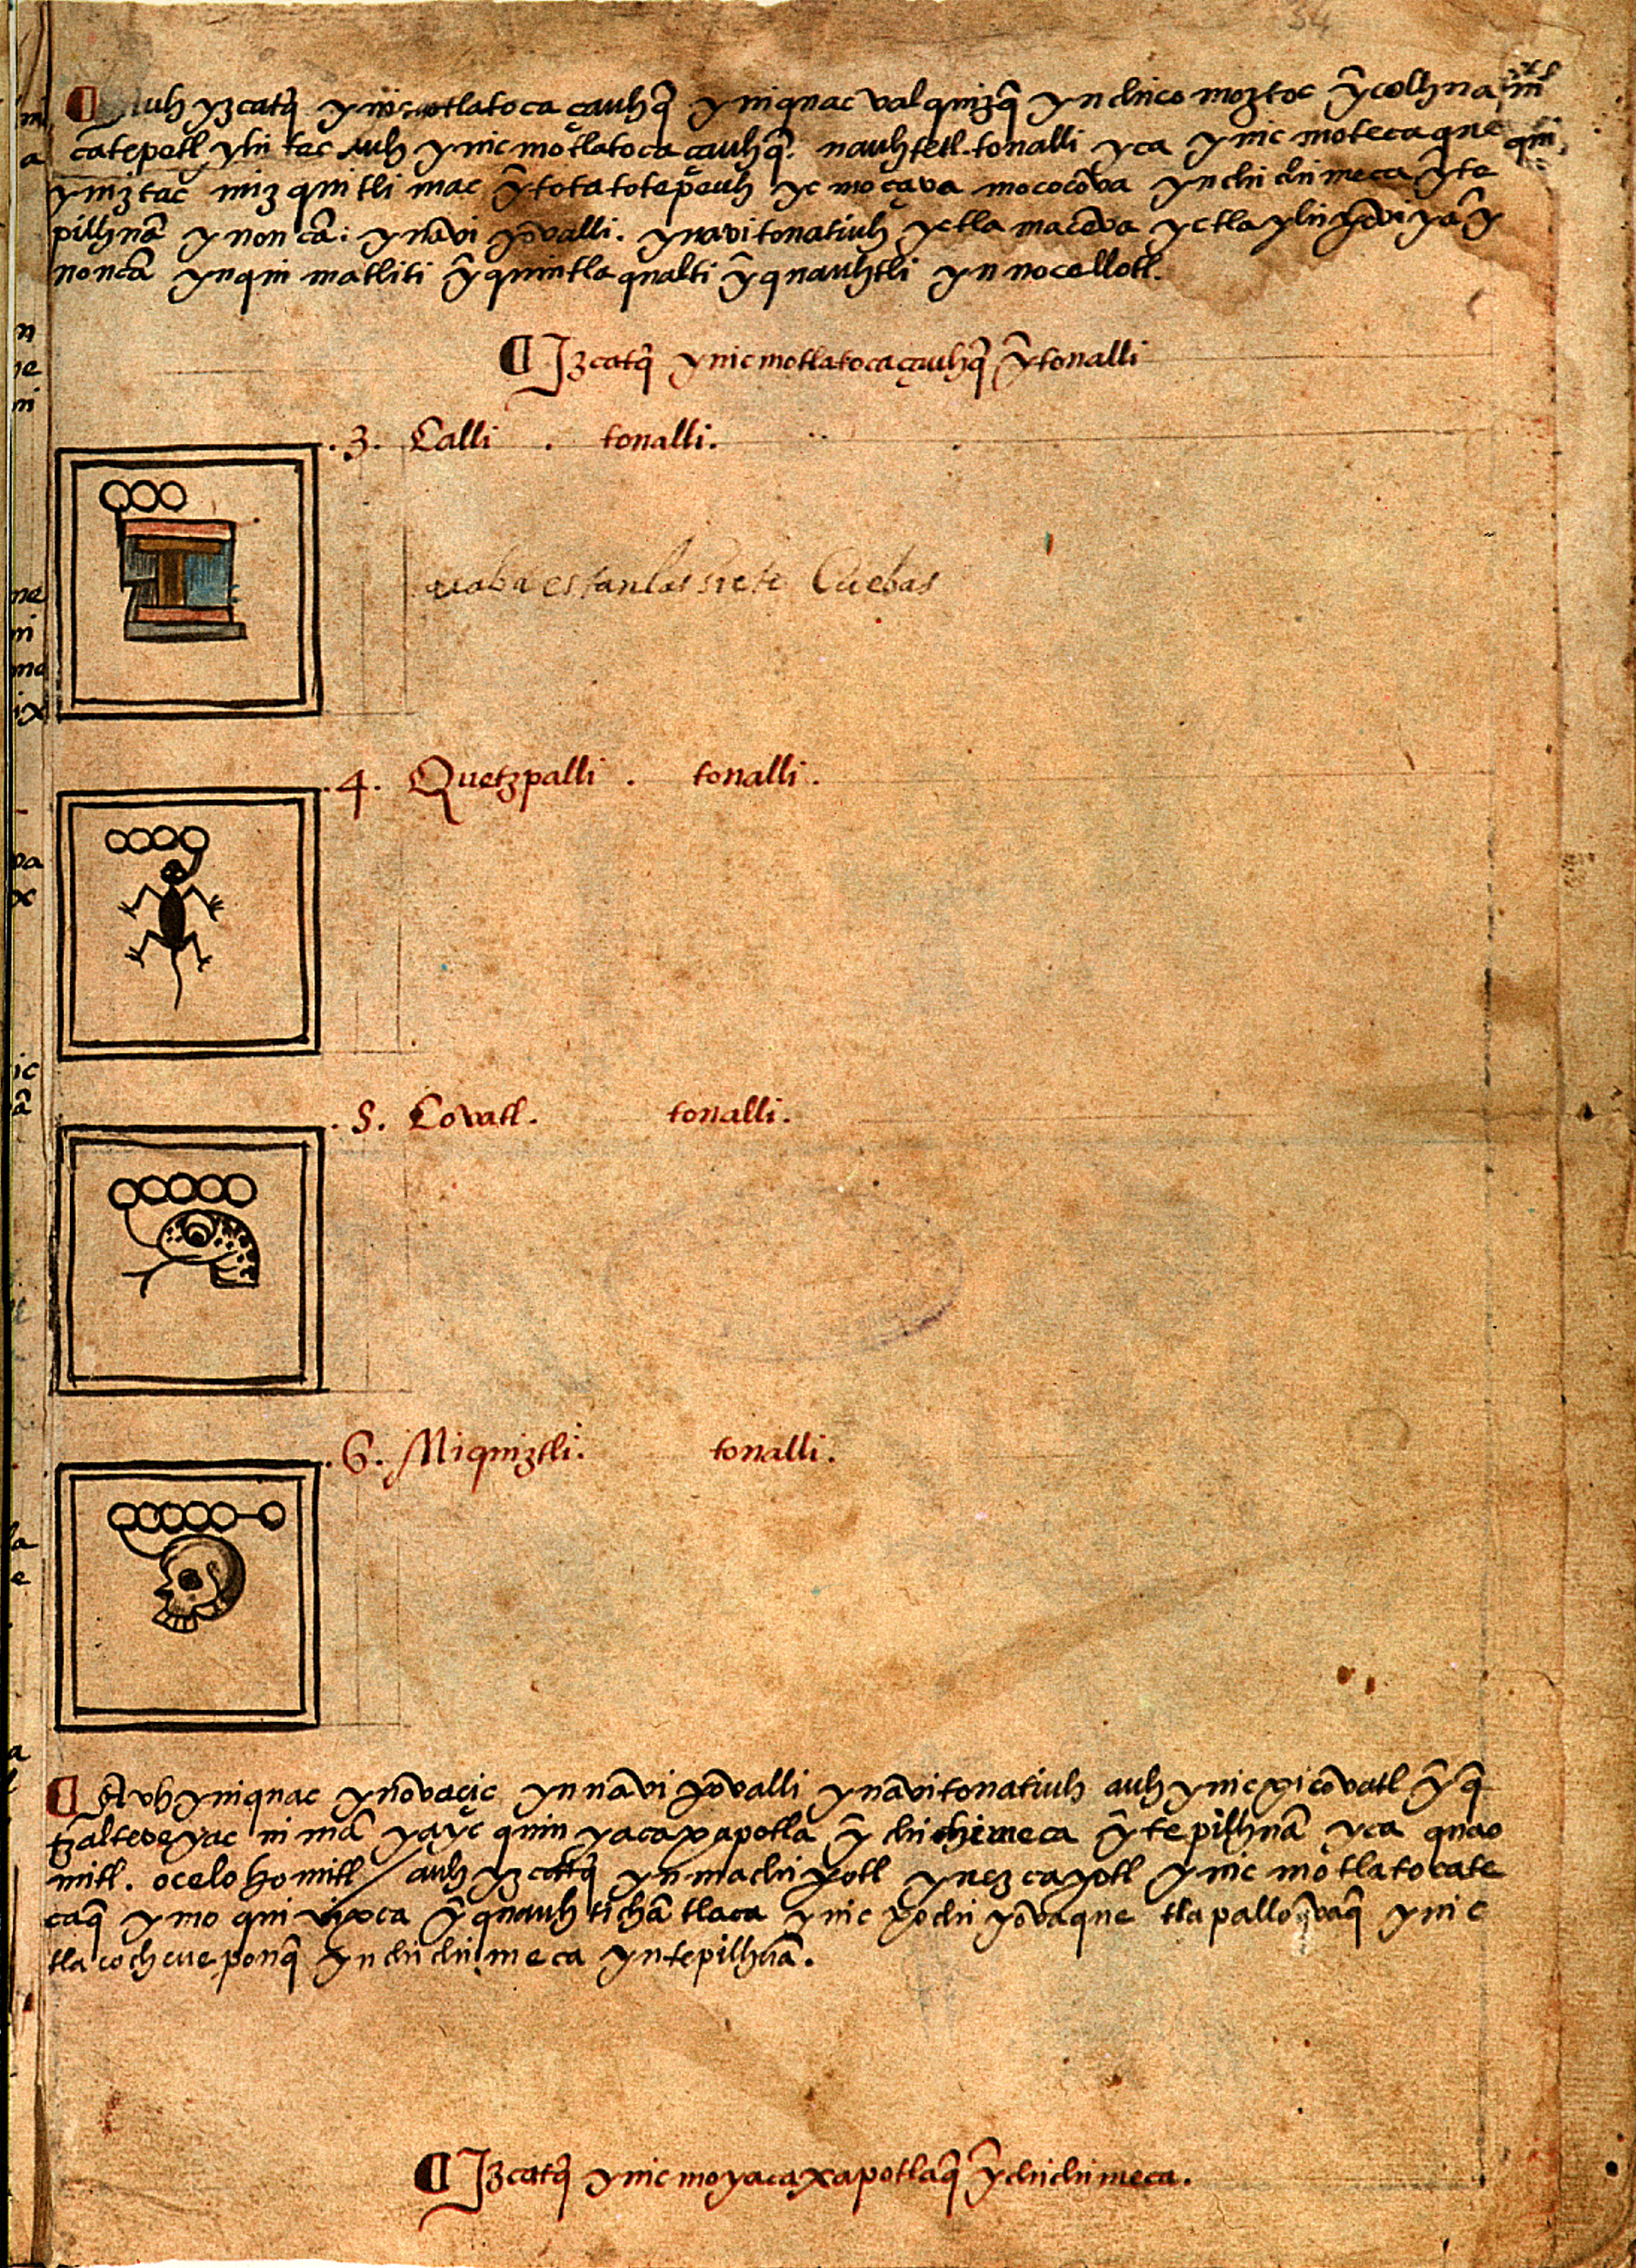 34
auh yzcatq̃ ynic motlatoca çauhq̃ yniquac valquizq̃ ynchicomoztoc ỹcolhuaca
catepetl yhitec auh ynic motlatoca çauhq̃. nauhtetl. tonalli yca ynic moteca que qui
ymiztac mizquitli mac ỹtotatotepeuh yc moçava mococova ynchichimeca ỹte
pilhuã ynoncã: ynãvi yõvalli. ynavitonatiuh yctla macẽva yctlaylhiyõvi yã ỹ
noncã ynquimatliti ỹquintlaqualti ỹquauhtli ynnocellotl.
Jzcatq̃ ynic motlatocaçauhq̃ ỹtonalli
.3. Calli . tonalli.
estan las siete Cuebas
.4. Quetzpalli . tonalli.
.5. Covatl. tonalli.
.6. Miquiztli. tonalli.
Auh yniquac ynõvacic ynnãvi yõvalli ynãvitonatiuh auh ynicxicõvatl ỹq̃
tzalteveyac nimã yayc quinyacaxapotla ỹchichimeca ỹtepilhuã yca quao
mitl. ocelohomitl / auh yzcatq̃ ynmachiyotl ynezcayotl ynic motlatocate
caq̃ ymo quivixca ỹquauhtichã tlaca ynic xochiyõvaque tlapallõvaq̃ ynic
tlacochcueponq̃ ynchichimeca yntepilhuã.
Jzcatq̃ ynic moyacaxapotlaq̃ ỹchichimeca.